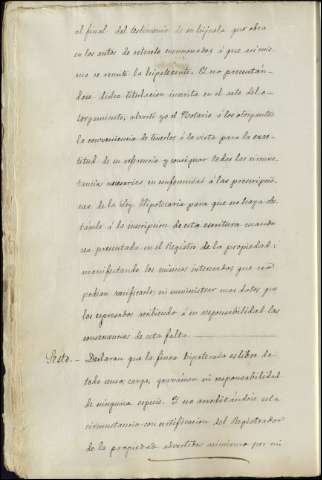 al final del testimonio de su hijuela que obra
en los autos de referencia mencionados á que asimis-
mo se remite la hipotecante. Y no presentán-
dose dicha titulacion inscrita en el acto del o-
torgamiento, advertí yo el Notario á los otorgantes
la conveniencia de tenerlos á la vista para la exac-
titud de su referencia y consignar todas las circuns-
tancias necesarias en conformidad á las prescripcio-
nes de la ley Hipotecaria para que no haya obs-
táculo á la inscripcion de esta escritura cuando
sea presentada en el Registro de la propiedad;
manifestando los mismos interesados que no
podian verificarlo, ni suministrar mas datos que
los expresados recibiendo á su responsabilidad las
consecuencias de esta falta.
Sesto. - Declaran que la finca hipotecada es libre de
toda censo, carga, gravamen ni responsabilidad
de ninguna especie. Y no acreditándose esta
circunstancia con certificacion del Registrador
de la propiedad advertidos asimismo por mi